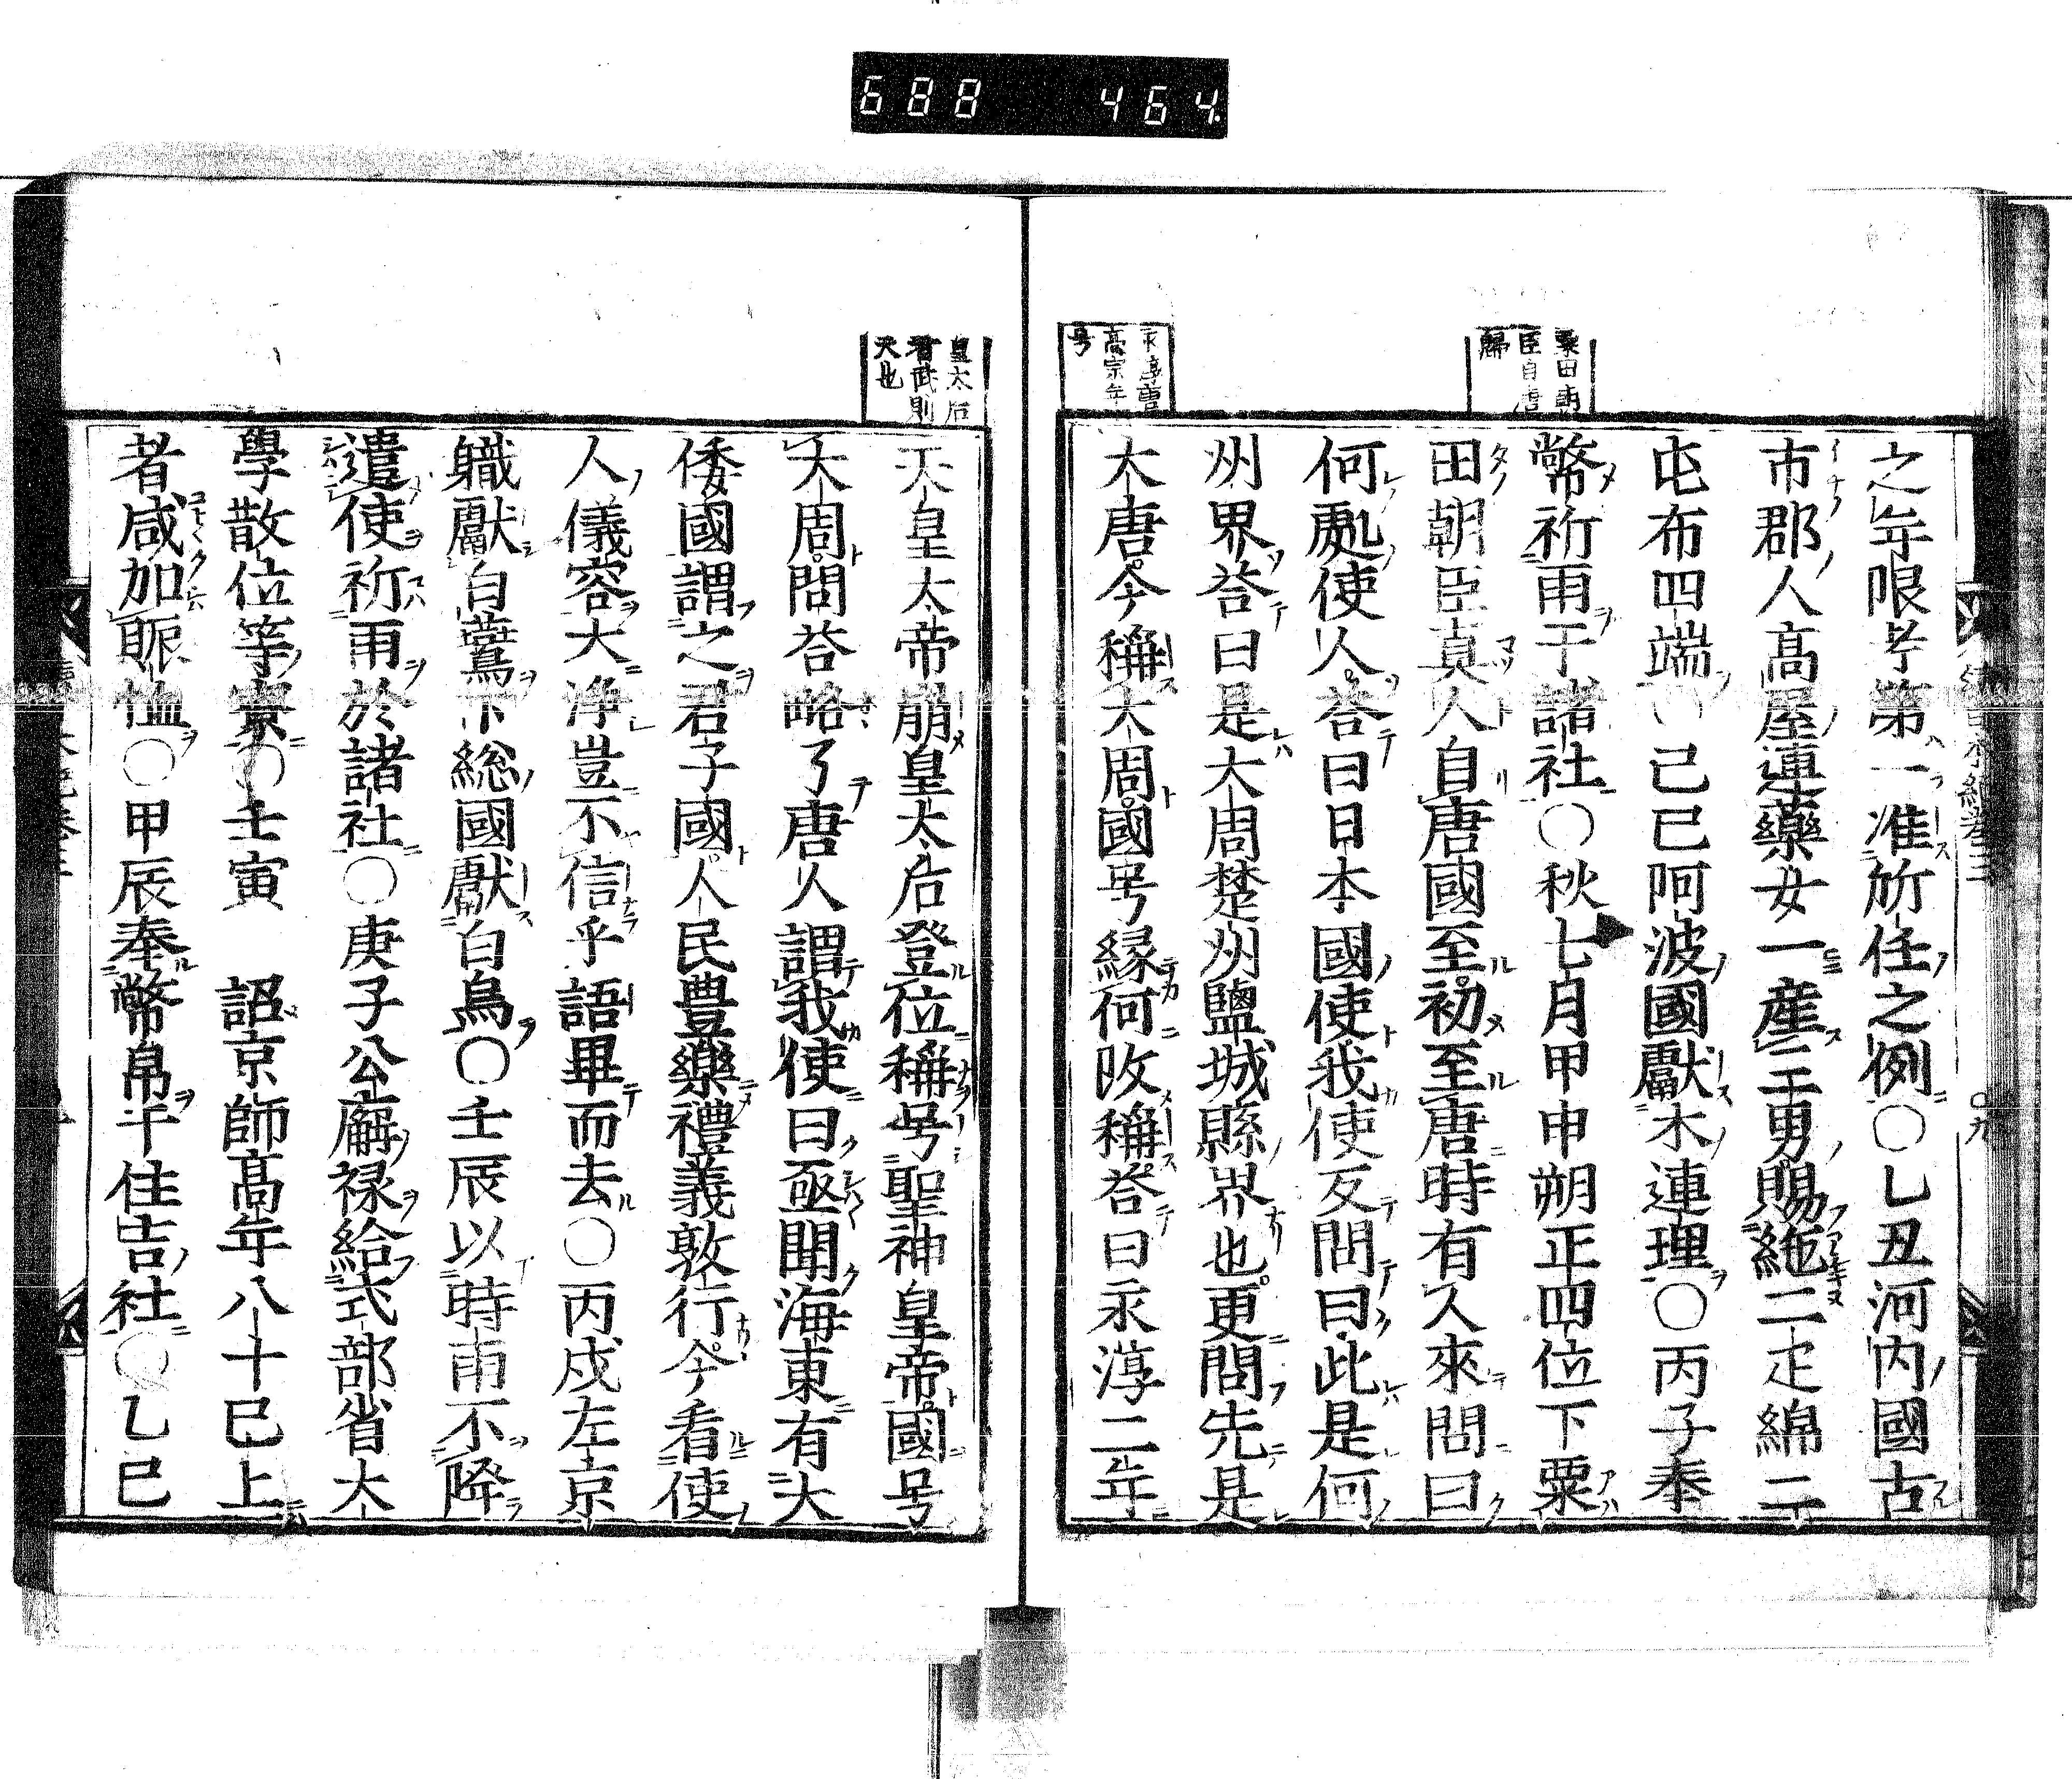 688 464.
粟田朝
臣自唐
歸
永淳唐
高宗年
号
之年限考第一准所任之例○乙丑河内國古
市郡人高屋連藥女一産三男賜絁二疋綿二
屯布四端○己巳阿波國獻木連理○丙子奉
幣祈雨于諸社○秋七月甲申朔正四位下粟
田朝臣真人自唐國至初至唐時有人來問曰
何處使人答曰日本國使我使反問曰此是何
州界答曰是大周楚州鹽城縣界也更問先是
大唐今稱大周國号緣何改稱答曰永淳二年
皇太后
者武則
天也
天皇太帝崩皇太后登位稱号聖神皇帝國号
大周問答略了唐人謂我使曰亟聞海東有大
倭國謂之君子國人民豊樂禮義敦行今看使
人儀容大浄豈不信乎語畢而去○丙戌左京
職獻白鷰下総國獻白烏○壬辰以時雨不降
遣使祈雨於諸社○庚子公廨禄給式部省大
學散位等寮○壬寅 詔京師髙年八十已上
者咸加賑恤○甲辰奉幣帛于住吉社○乙巳